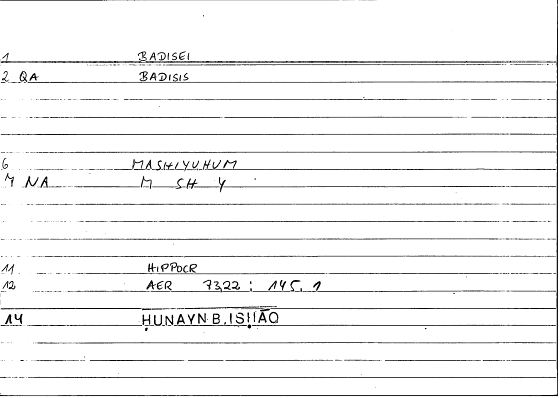 1 BADISEI
2 QA BADISIS
6 MASHIYUHUM
7 NA M SH Y
11 HIPPOCR
12 AER 7322 : 145, 1
14 ḤUNAYN B. ISḤĀQ